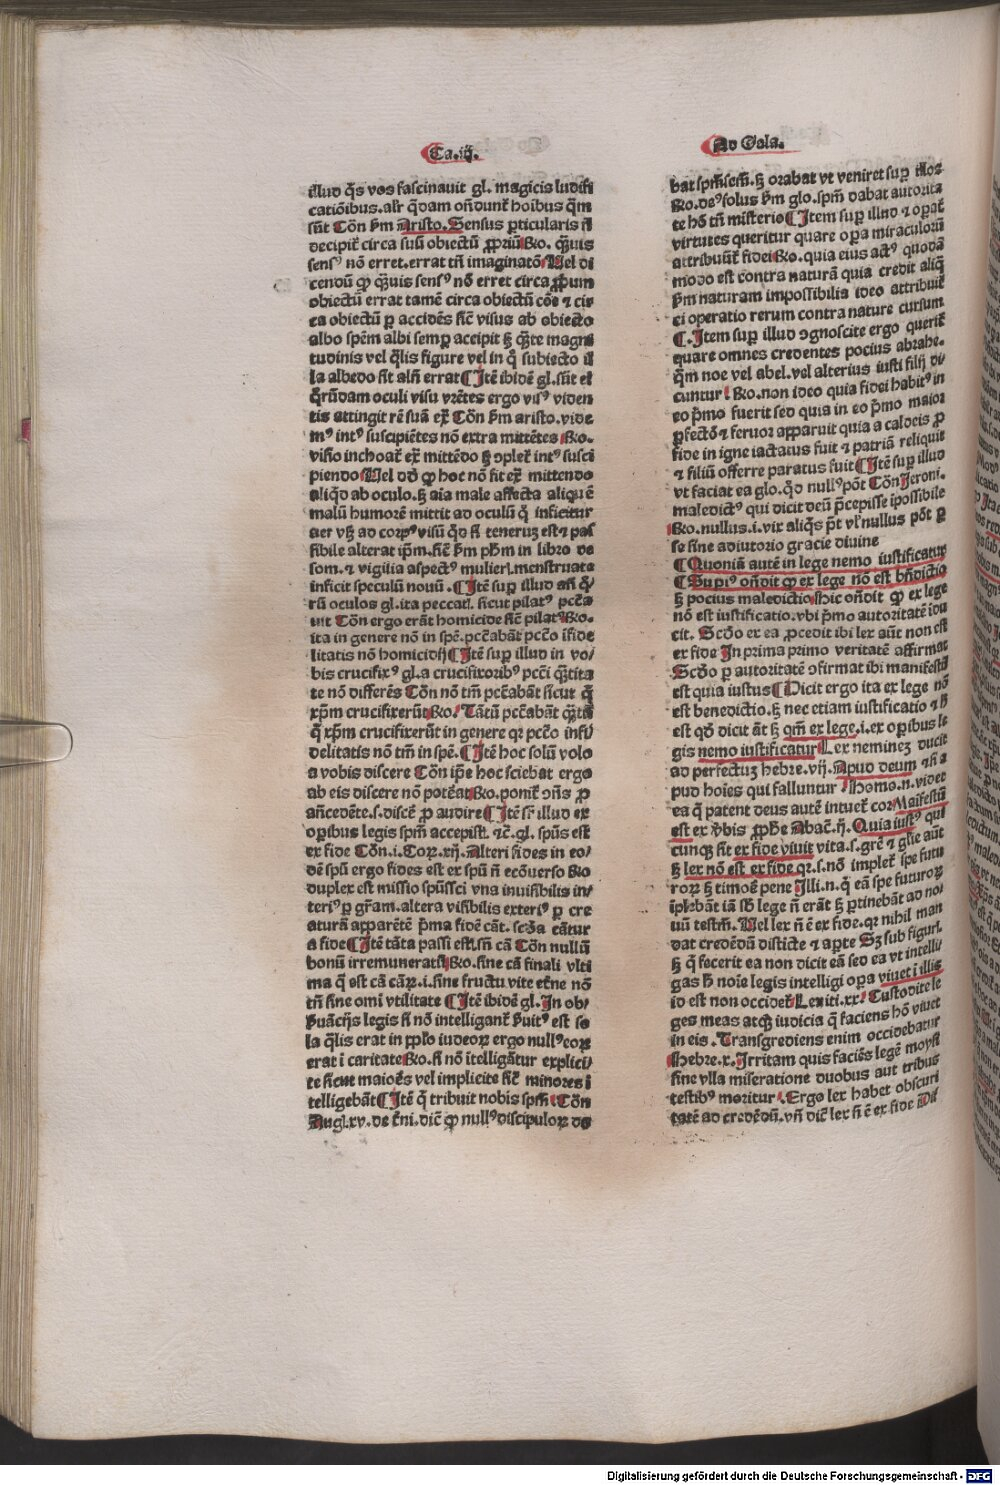 Ca. iij.
illud q̄s vos fascinauit gl. magicis ludifi
catiōibus. alr̄ q̄dam on̄dunt hoībus q̄m
sūt Cōn ẜm Aristo. Sensus ꝑticularis n̄
decipit̄ circa suū obiectū ꝓpriū Ro. q̄uis
sensꝰ nō erret. errat tn̄ imaginatō Vel di
cendū ꝙ q̄uis sensꝰ nō erret circa ꝓpum
obiectū errat tamē circa obiectū cōe ⁊ cir
ca obiectū ꝑ accidēs sic̄ visus ab obiecto
albo spēm albi semꝑ accipit ꝫ q̄te magni
tudinis vel q̄lis figure vel in q̄ subiecto il
la albedo sit aln̄ errat ¶ Itē ibidē gl. sūt ei
q̄rūdam oculi visu vrētes ergo visꝰ viden
tis attingit rē suā ex̄ Cōn ẜm aristo. vide
mꝰ intꝰ suscipiētes nō extra mittētes Ro.
visio inchoat̄ ex̄ mittēdo ꝫ ɔplet̄ intꝰ susci
piendo Vel dō ꝙ hoc nō fit ex̄ mittendo
aliq̄d ab oculo. ꝫ aīa male affecta aliquē
malū humorē mittit ad oculū q̄ inficitur
aer vsꝫ ad corpꝰ visū q̄d si teneruꝫ est ⁊ pas
sibile alterat ip̄m. sic̄ ẜm ph̄m in libro de
som. ⁊ vigilia aspectꝰ mulieris menstruata
inficit speculū nouū. ¶ Itē suꝑ illud an̄ q̄
rū oculos gl. ita peccat̄. sicut pilatꝰ pctā
uit Cōn ergo erāt homicide sic̄ pilatꝰ Ro.
ita in genere nō in spē. pctābāt pctō īfide
litatis nō homicidij ¶ Itē suꝑ illud in vo
bis crucifixꝰ gl. a crucifixoribꝰ pcti q̄tita
te nō differēs Cōn nō tm̄ pctābāt sicut q̄
xp̄m crucifixerūt Ro. Tātū pctābāt q̄tū
q̄ xp̄m crucifixerūt in genere qꝛ pctō infi
delitatis nō tm̄ in spē. ¶ Itē hoc solū volo
a vobis discere Cōn ip̄e hoc sciebat ergo
ab eis discere nō poterat Ro. ponit̄ ɔn̄s ꝓ
an̄cedēte. s. discē ꝓ audire ¶ Itē sr̄ illud ex
oꝑibus legis spm̄ accepistꝭ. ⁊c̄. gl. spūs est
ex fide Cōn. i. Cor. xij. Alteri fides in eo
dē spū ergo fides est ex spū n̄ ecōuerso Ro
duplex est missio spūssci vna inuisibilis in
teriꝰ ꝑ gr̄am. altera visibilis exteriꝰ ꝑ cre
aturā apparētē prīma fidē cāt. scd̄a cātur
a fide ¶ Itē tāta passi estꝭ. sn̄ cā Cōn nullū
bonū irremuneratū Ro. sine cā finali vlti
ma q̄ est cā cārꝫ. i. sine fructu vite etn̄e nō
tn̄ sine omī vtilitate ¶ Itē ibidē gl. In ob
ẜuācijs legis si nō intelligant̄ ẜuitꝰ est so
la q̄lis erat in pplo iudeorꝫ ergo nullꝰ eorꝫ
erat ī caritate Ro. si nō ītelligātur explici
te sicut maiores vel implicite sic̄ minores ī
telligebāt ¶ Itē q̄ tribuit nobis spm̄ Cōn
Augꝭ. xv. de tn̄i. dic̄ ꝙ nullꝰ discipulorꝫ da
Ad Gala.
bat spm̄ sm̄. ꝫ orabat vt veniret suꝑ illos
Ro. deꝰ solus ẜm glo. spm̄ dabat autorita
te hō tn̄ misterio ¶ Item suꝑ illud ⁊ oꝑat̄
virtutes queritur quare oꝑa miraculorū
attribuūt̄ fidei Ro. quia eius actꝰ quodā
modo est contra naturā quia credit aliq̄
ẜm naturam impossibilia ideo attribuit̄
ei operatio rerum contra nature cursum
¶ Item suꝑ illud ɔgnoscite ergo querit̄
quare omnes credentes pocius abrahe.
q̄m noe vel abel. vel alterius iusti filij di
cuntur Ro. non ideo quia fidei habitꝰ in
eo pͥmo fuerit sed quia in eo pͥmo maior
ꝑfectō ⁊ feruor apparuit quia a caldeis ꝓ
fide in igne iactatus fuit ⁊ patriā reliquit
⁊ filiū offerre paratus fuit ¶ Itē suꝑ illud
vt faciat ea glo. q̄d nullꝰ pōt Cōn Jeroni.
maledictꝰ qui dicit deū p̄cepisse īpossibile
Ro. nullus. i. vix aliq̄s pt̄ vl̄ nullus pōt ꝑ
se sine adiutorio gracie diuine
¶ Quoniā autē in lege nemo iustificatur
¶ Supͥꝰ on̄dit ꝙ ex lege nō est bn̄dictio
ꝫ pocius maledictio Hic on̄dit ꝙ ex lege
nō est iustificatio. vbi pͥmo autoritatē īdu
cit. Scd̄o ex ea ꝓcedit ibi lex aūt non est
ex fide In prima primo veritatē affirmat
Scd̄o ꝑ autoritatē ɔfirmat ibi manifestū
est quia iustus ¶ Dicit ergo ita ex lege nō
est benedictio. ꝫ nec etiam iustificatio ⁊ h̄
est qd̄ dicit āt ꝫ qm̄ ex lege. i. ex oꝑibus le
gis nemo iustificatur Lex nemineꝫ ducit
ad perfectuꝫ hebre. vij. Apud deum ⁊ n̄ a
pud hoīes qui falluntur Homo. n. videt
ea q̄ patent deus autē intuet̄ cor Maīfestū
est ex ẜbis ꝓph̄e Abac̄. ij. Quia iustꝰ qui
cunqꝫ sit ex fide viuit vita. s. grē ⁊ glie aūt
ꝫ lex nō est ex fide qꝛ. s. nō implet̄ spe futu
rorꝫ ꝫ timoē pene Illi. n. q̄ eā spe futurorꝫ
īplebāt iā sb̄ lege n̄ erāt ꝫ ꝑtinebāt ad no
uū testm̄. Vel lex n̄ ē ex fide. qꝛ nihil man
dat credēdū disticte ⁊ aꝑte Sꝫ sub figurꝭ.
ꝫ q̄ fecerit ea non dicit eā sed ea vt intelli
gas h̄ noīe legis intelligi oꝑa viuet ī illis
id est non occidet̄ Leuiti. xx. Custodite le
ges meas atqꝫ iudicia q̄ faciens hō viuet
in eis. Transgrediens enim occidebatur
Hebre. x. Irritam quis faciēs legē moysi
sine vlla miseratione duobus aut tribus
testibꝰ moritur. Ergo lex habet obscuri
tatē ad credēdū. vn̄ dic̄ lex n̄ ē ex fide Di
Digitalisierung gefördert durch die Deutsche Forschungsgemeinschaft - DFG